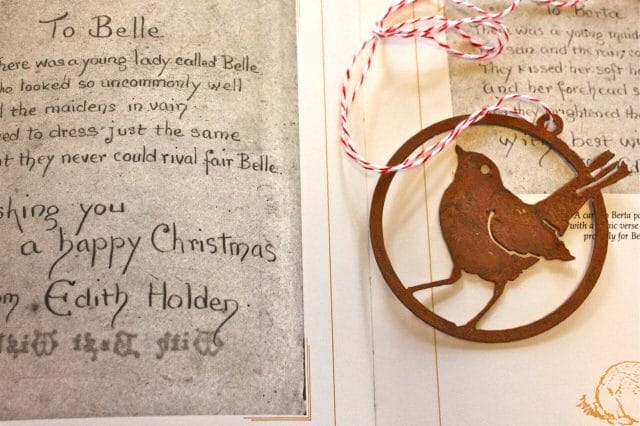 To Belle
here was a young lady called Belle
ho looked so uncommonly well
l the maidens in vain
ed to dress just the same
t they never could rival fair Belle.
shing you
a happy Christmas
om Edith Holden.
With Best Wish
To Berta
There was a young maide
sun and the rain co
They kissed her soft
and her forehead s
they brightened the
With best wi
A car to Berta po
with a ic verse
pro ly for Be